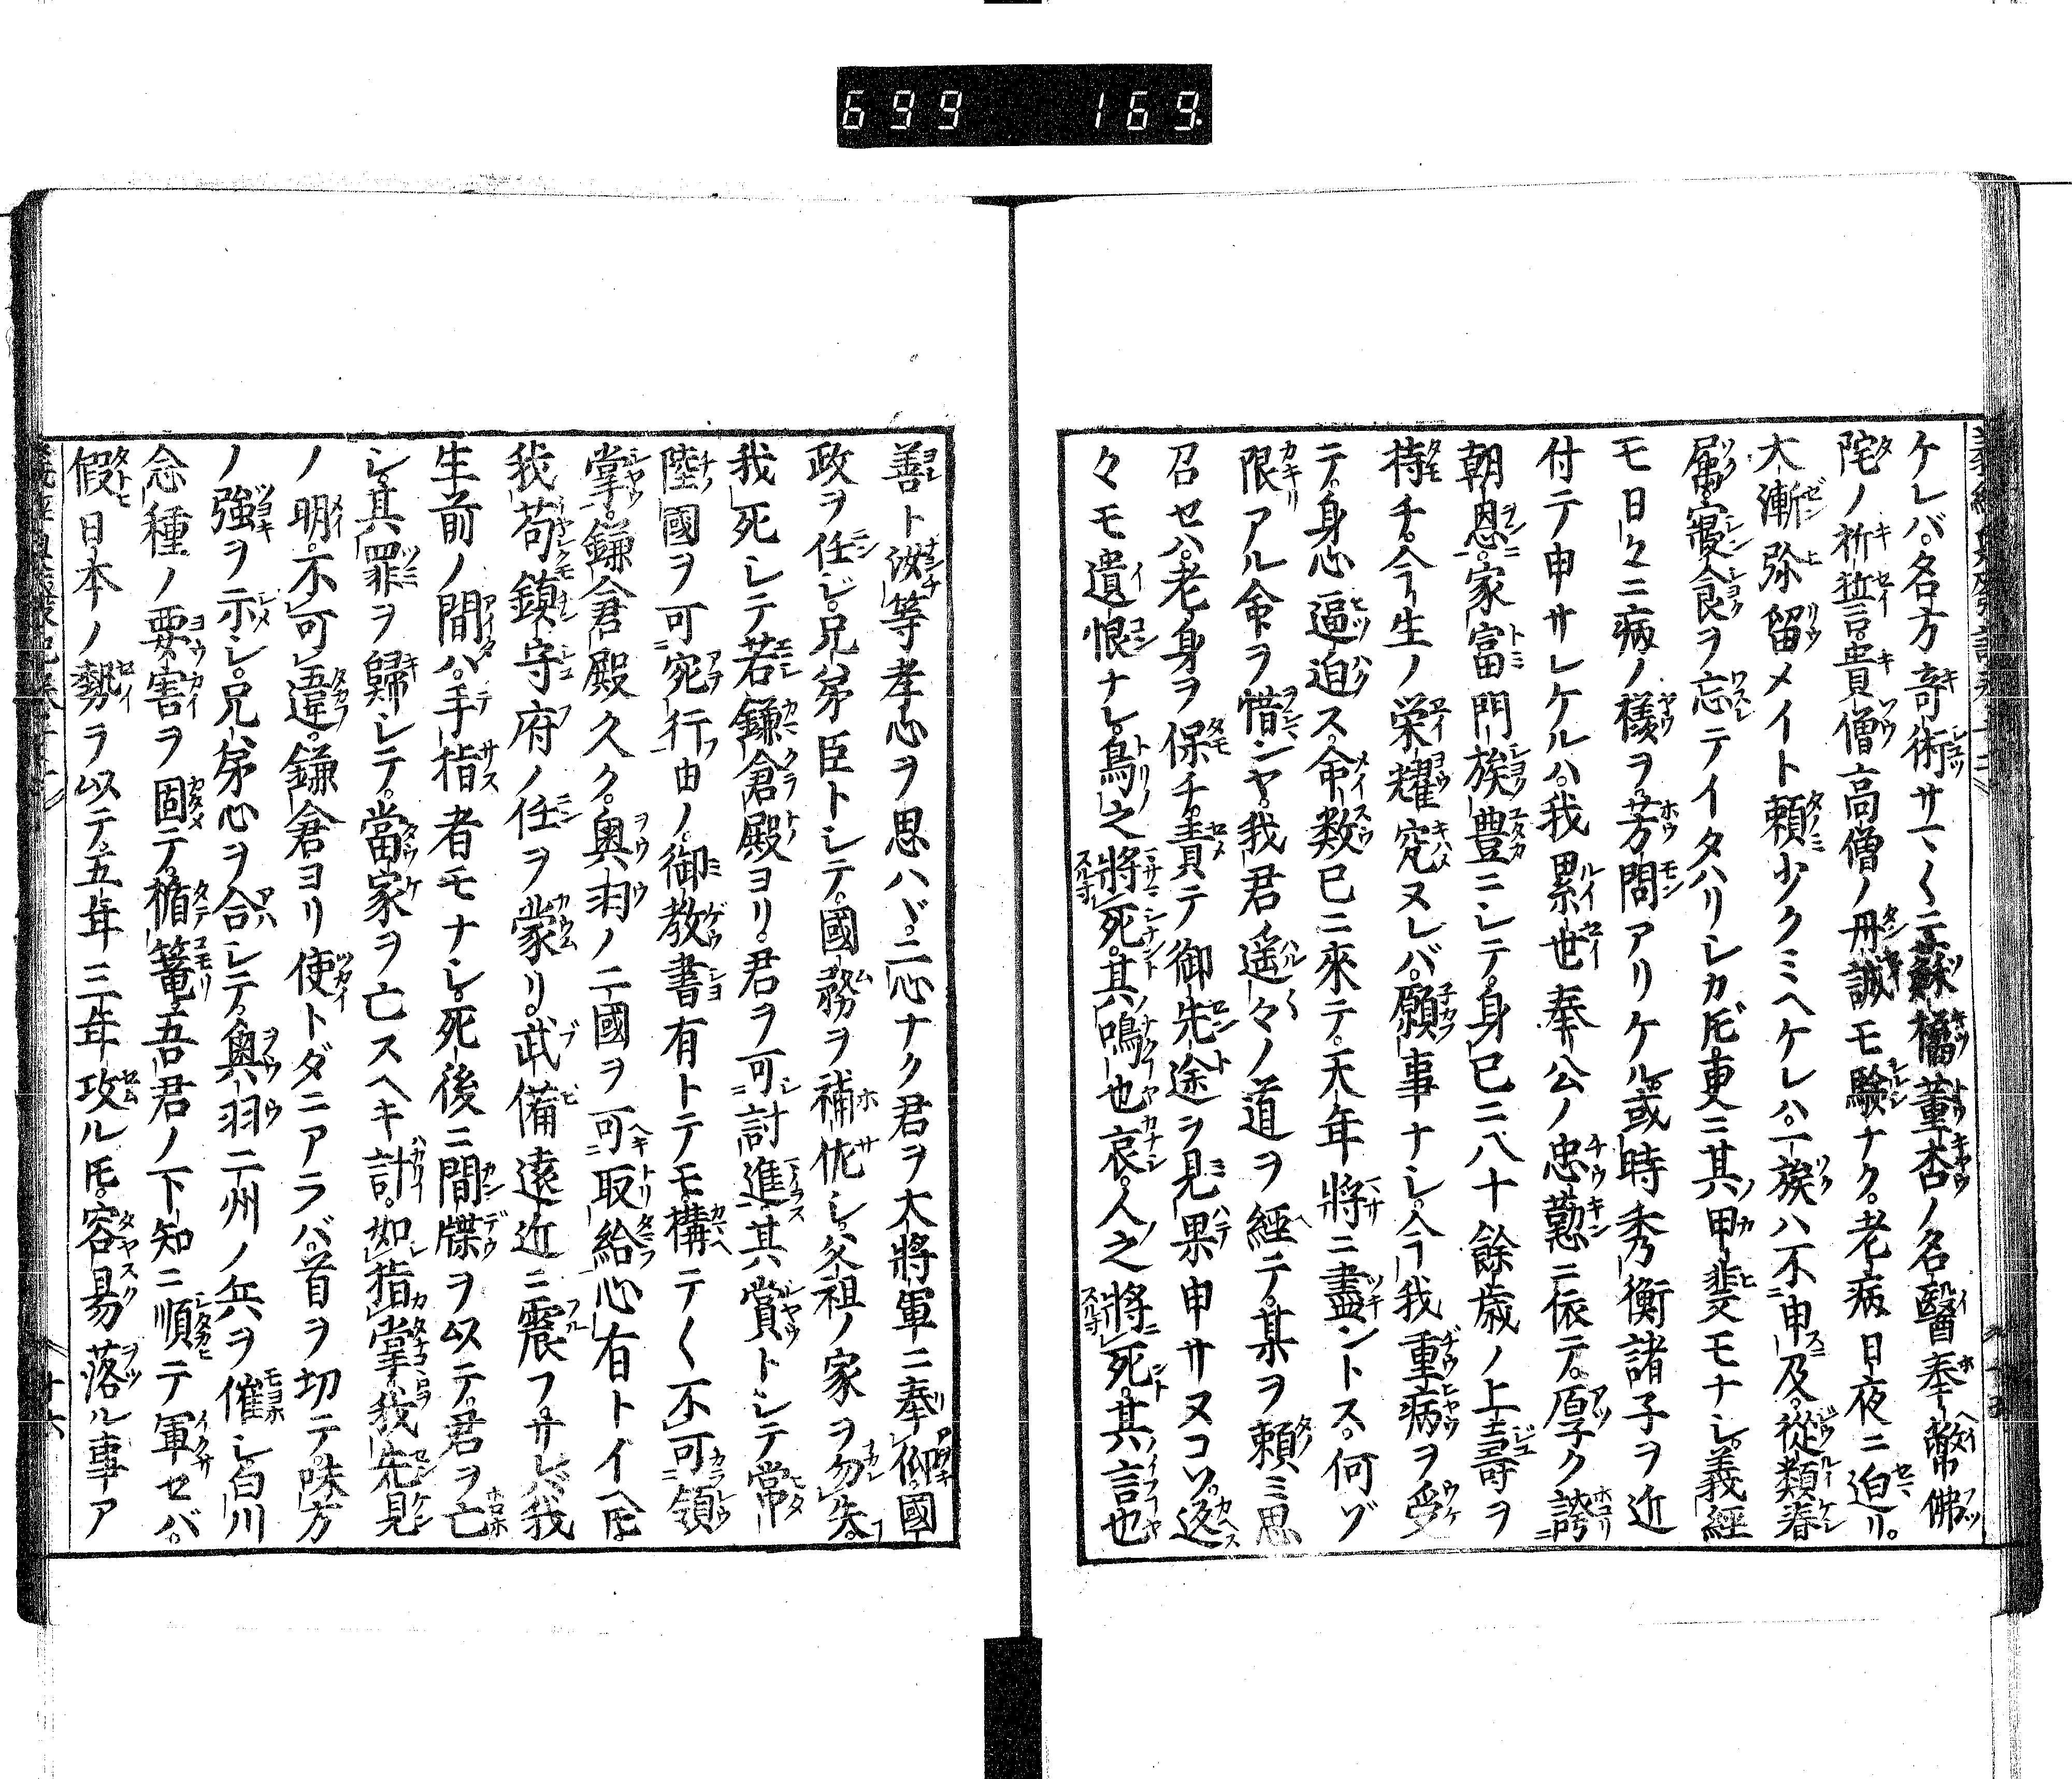 699 169
ケレバ。名方奇術サマ〱ニ。蘇橘董杏ノ名醫奉幣佛
陀ノ祈誓。貴僧高僧ノ丹誠モ驗ナク。老病日夜ニ迫リ。
大漸弥留メイト頼少クミヘケレハ。一族ハ不申及。從類眷
属。寢食ヲ忘テイタハリシカ𪜈更ニ其甲斐モナシ。義經
モ日々ニ病ノ樣ヲ。芳問アリケル。或時秀衡諸子ヲ近
付テ申サレケルハ。我累世奉公ノ忠懃ニ依テ。厚ク誇
朝恩。家富門族豊ニシテ。身已ニ八十餘歳ノ上壽ヲ
持チ。今生ノ栄耀究ヌレバ。願事ナシ。今我重病ヲ受
テ。身心逼迫ス。命数已ニ來テ。天年將ニ盡ントス。何ゾ
限アル命ヲ惜ンヤ。我君ノ遥々ノ道ヲ經テ。某ヲ頼ミ思
召セハ。老身ヲ保チ。責テ御先途ヲ見果申サヌコソ。返
々モ遺恨ナレ。鳥之將死。其鳴也哀。人之將死。其言也
善ト。汝等孝心ヲ思ハヾ。二心ナク君ヲ大將軍ニ奉仰。國
政ヲ任ジ。兄弟臣トシテ。國務ヲ補佐シ。父祖ノ家ヲ勿失。
我死シテ若鎌倉殿ヨリ。君ヲ可討進。其賞トシテ常
陸國ヲ可宛行由ノ。御教書有トテモ。構テ〱不可領
掌。鎌倉殿久ク。奥羽ノ二國ヲ可取給心有トイヘ𪜈。
我苟鎮守府ノ任ヲ蒙リ。武備遠近ニ震フ。サレバ我
生前ノ間ハ。手指者モナシ。死後ニ間牒ヲ以テ。君ヲ亡
シ。其罪ヲ歸シテ。當家ヲ亡スヘキ計。如指掌。我先見
ノ明。不可違。鎌倉ヨリ使トダニアラバ。首ヲ切テ。味方
ノ強ヲ示シ。兄弟心ヲ合シテ。奥羽二州ノ兵ヲ催シ。白川
念種ノ要害ヲ固テ。楯篭。吾君ノ下知ニ順テ軍セバ。
假日本ノ勢ヲ以テ。五年三年攻ル𪜈。容易落ル事ア
十六